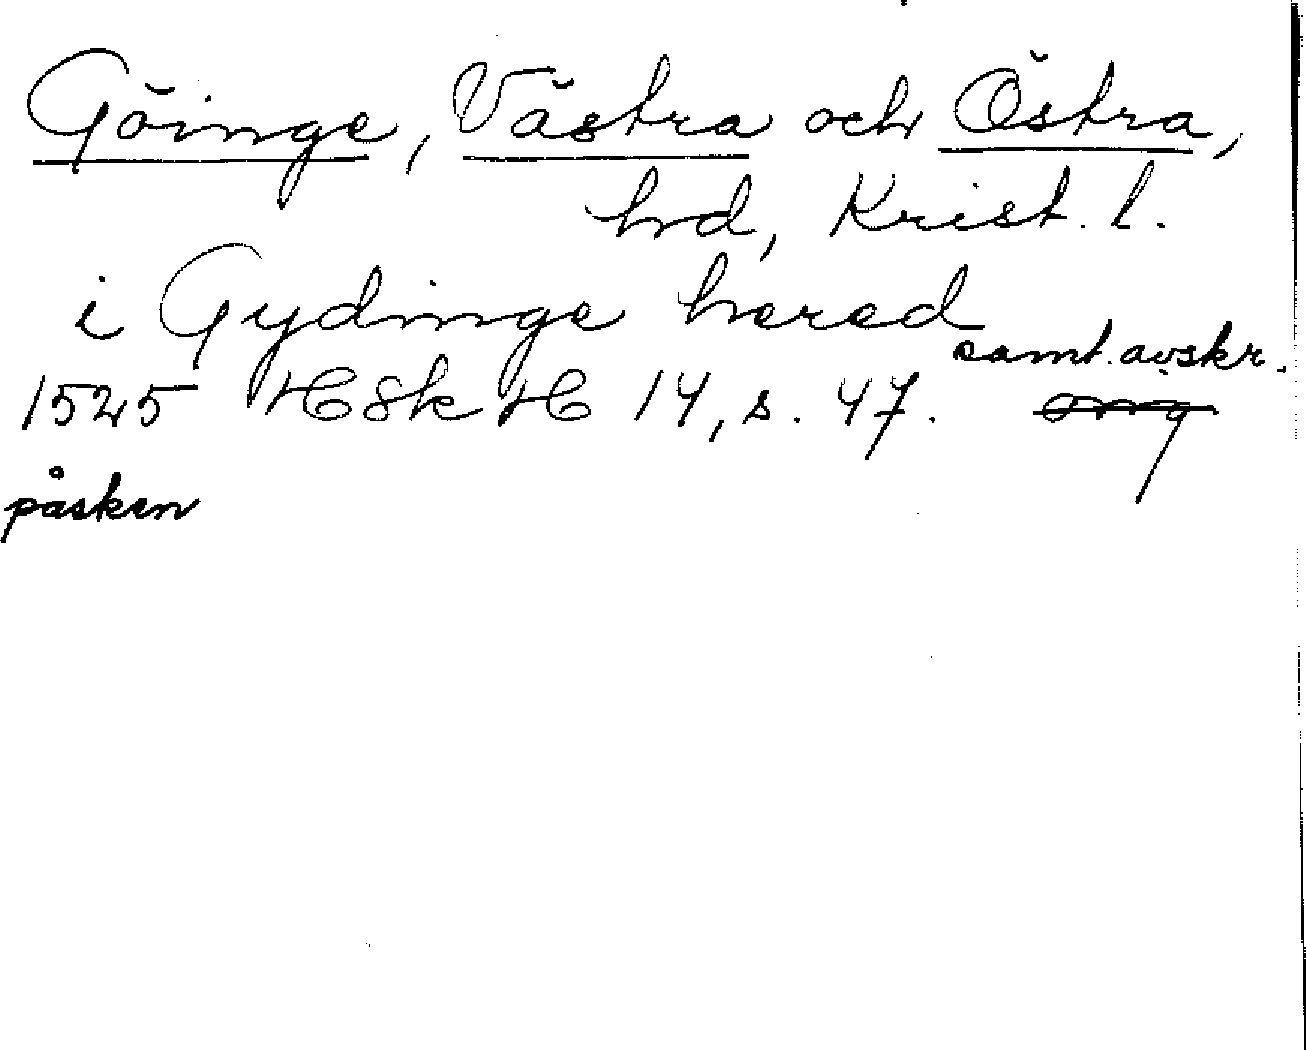 Göinge, Västra och Östra,
hrd, Krist. l.
i Gydinge hered
samt. avskr.
1525 HSkH 14, s. 47. orig
påsken